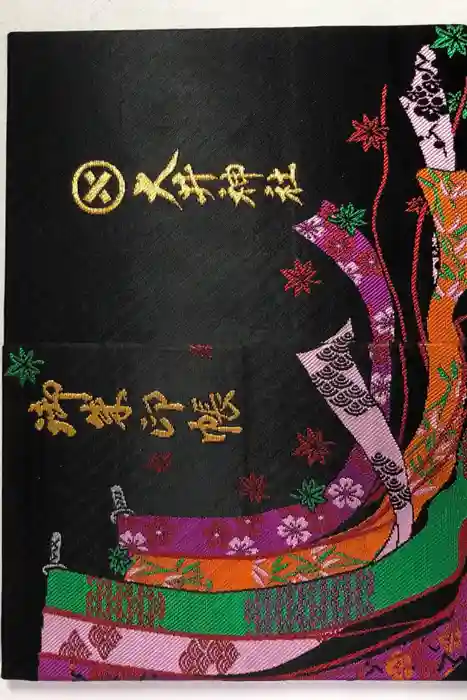 大井神社
御朱印帳